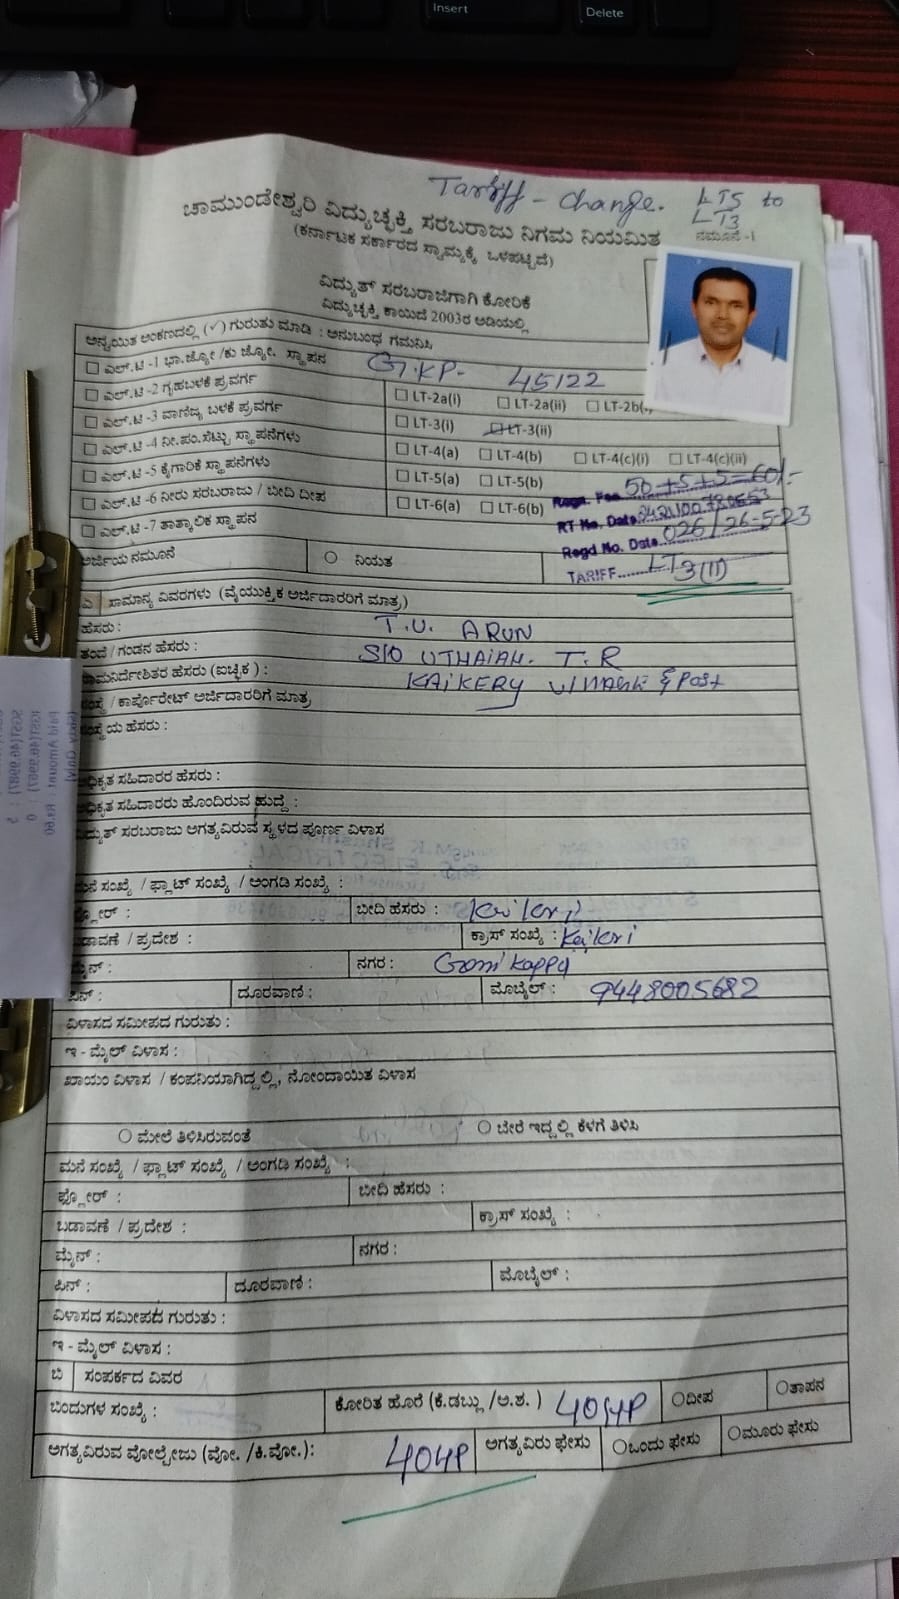 Insert
Delete
Tariff - change. LT5 to
LT3
ಚಾಮುಂಡೇಶ್ವರಿ ವಿದ್ಯುಚ್ಛಕ್ತಿ ಸರಬರಾಜು ನಿಗಮ ನಿಯಮಿತ
ನಮೂನೆ -1
(ಕರ್ನಾಟಕ ಸರ್ಕಾರದ ಸ್ವಾಮ್ಯಕ್ಕೆ ಒಳಪಟ್ಟಿದೆ)
ವಿದ್ಯುತ್ ಸರಬರಾಜಿಗಾಗಿ ಕೋರಿಕೆ
ವಿದ್ಯುಚ್ಛಕ್ತಿ ಕಾಯಿದೆ 2003ರ ಅಡಿಯಲ್ಲಿ
ಅನ್ವಯಿತ ಅಂಕಣದಲ್ಲಿ (✓) ಗುರುತು ಮಾಡಿ : ಅನುಬಂಧ ಗಮನಿಸಿ
ಎಲ್.ಟಿ -1 ಭಾ.ಜ್ಯೋ /ಕು ಜ್ಯೋ. ಸ್ಥಾಪನ G.KP- 45122
ಎಲ್.ಟಿ -2 ಗೃಹಬಳಕೆ ಪ್ರವರ್ಗ LT-2a(i) LT-2a(ii) LT-2b(
ಎಲ್.ಟಿ -3 ವಾಣಿಜ್ಯ ಬಳಕೆ ಪ್ರವರ್ಗ LT-3(i) LT-3(ii)
ಎಲ್.ಟಿ -4 ನೀ.ಪಂ.ಸೆಟ್ಟು ಸ್ಥಾಪನೆಗಳು LT-4(a) LT-4(b) LT-4(c)(i) LT-4(c)(ii)
ಎಲ್.ಟಿ -5 ಕೈಗಾರಿಕೆ ಸ್ಥಾಪನೆಗಳು LT-5(a) LT-5(b)
ಎಲ್.ಟಿ -6 ನೀರು ಸರಬರಾಜು / ಬೀದಿ ದೀಪ LT-6(a) LT-6(b)
ಎಲ್.ಟಿ -7 ತಾತ್ಕಾಲಿಕ ಸ್ಥಾಪನ
Regn. Fee 50+5+5=60/-
RT No. Date
Regd No. Date 026/26-5-23
TARIFF...... LT3(II)
ಅರ್ಜಿಯ ನಮೂನೆ ನಿಯತ
ಎ ಸಾಮಾನ್ಯ ವಿವರಗಳು (ವೈಯುಕ್ತಿಕ ಅರ್ಜಿದಾರರಿಗೆ ಮಾತ್ರ)
ಹೆಸರು : T.U. ARUN
ತಂದೆ / ಗಂಡನ ಹೆಸರು : S/O UTHAIAH. T.R
ನಾಮನಿರ್ದೇಶಿತರ ಹೆಸರು (ಐಚ್ಛಿಕ ) : KAIKERY Village & Post
ಸಂಸ್ಥೆ / ಕಾರ್ಪೊರೇಟ್ ಅರ್ಜಿದಾರರಿಗೆ ಮಾತ್ರ
ಸಂಸ್ಥೆಯ ಹೆಸರು :
ಅಧಿಕೃತ ಸಹಿದಾರರ ಹೆಸರು :
ಅಧಿಕೃತ ಸಹಿದಾರರು ಹೊಂದಿರುವ ಹುದ್ದೆ :
ವಿದ್ಯುತ್ ಸರಬರಾಜು ಅಗತ್ಯವಿರುವ ಸ್ಥಳದ ಪೂರ್ಣ ವಿಳಾಸ
ಮನೆ ಸಂಖ್ಯೆ / ಫ್ಲಾಟ್ ಸಂಖ್ಯೆ / ಅಂಗಡಿ ಸಂಖ್ಯೆ :
ಫ್ಲೋರ್ : ಬೀದಿ ಹೆಸರು : Kaikeri
ಬಡಾವಣೆ / ಪ್ರದೇಶ : ಕ್ರಾಸ್ ಸಂಖ್ಯೆ : Kaikeri
ಮೈನ್ : ನಗರ : Gonikoppa
ಪಿನ್ : ದೂರವಾಣಿ : ಮೊಬೈಲ್ : 9448005682
ವಿಳಾಸದ ಸಮೀಪದ ಗುರುತು :
ಇ - ಮೈಲ್ ವಿಳಾಸ :
ಖಾಯಂ ವಿಳಾಸ / ಕಂಪನಿಯಾಗಿದ್ದಲ್ಲಿ, ನೋಂದಾಯಿತ ವಿಳಾಸ
ಮೇಲೆ ತಿಳಿಸಿರುವಂತೆ ಬೇರೆ ಇದ್ದಲ್ಲಿ ಕೆಳಗೆ ತಿಳಿಸಿ
ಮನೆ ಸಂಖ್ಯೆ / ಫ್ಲಾಟ್ ಸಂಖ್ಯೆ / ಅಂಗಡಿ ಸಂಖ್ಯೆ :
ಫ್ಲೋರ್ : ಬೀದಿ ಹೆಸರು :
ಬಡಾವಣೆ / ಪ್ರದೇಶ : ಕ್ರಾಸ್ ಸಂಖ್ಯೆ :
ಮೈನ್ : ನಗರ :
ಪಿನ್ : ದೂರವಾಣಿ : ಮೊಬೈಲ್ :
ವಿಳಾಸದ ಸಮೀಪದ ಗುರುತು :
ಇ - ಮೈಲ್ ವಿಳಾಸ :
ಬಿ ಸಂಪರ್ಕದ ವಿವರ
ಬಿಂದುಗಳ ಸಂಖ್ಯೆ : ಕೋರಿತ ಹೊರೆ (ಕಿ.ಡಬ್ಲು /ಅ.ಶ. ) 40HP ದೀಪ ತಾಪನ
ಅಗತ್ಯವಿರುವ ವೋಲ್ಟೇಜು (ವೋ. /ಕಿ.ವೋ.): 40HP ಅಗತ್ಯವಿರು ಫೇಸು ಒಂದು ಫೇಸು ಮೂರು ಫೇಸು